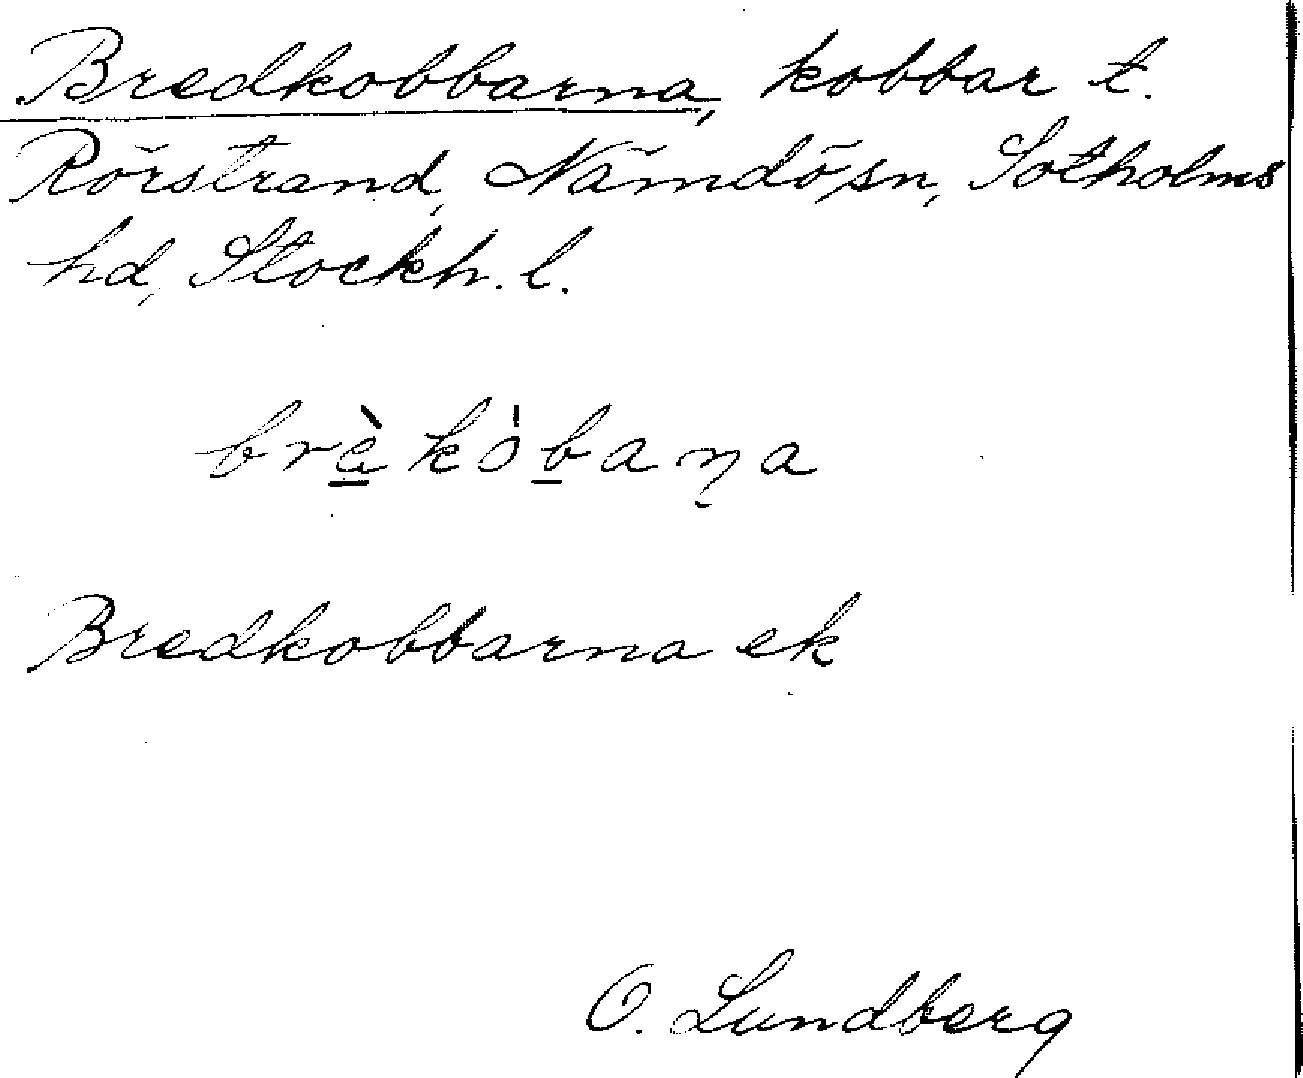 Bredkobbarna, kobbar t.
Rörstrand, Nämdö sn, Sotholms
hd, Stockh. l.
brè̱kòḇaɳa
Bredkobbarna ek
O. Lundberg